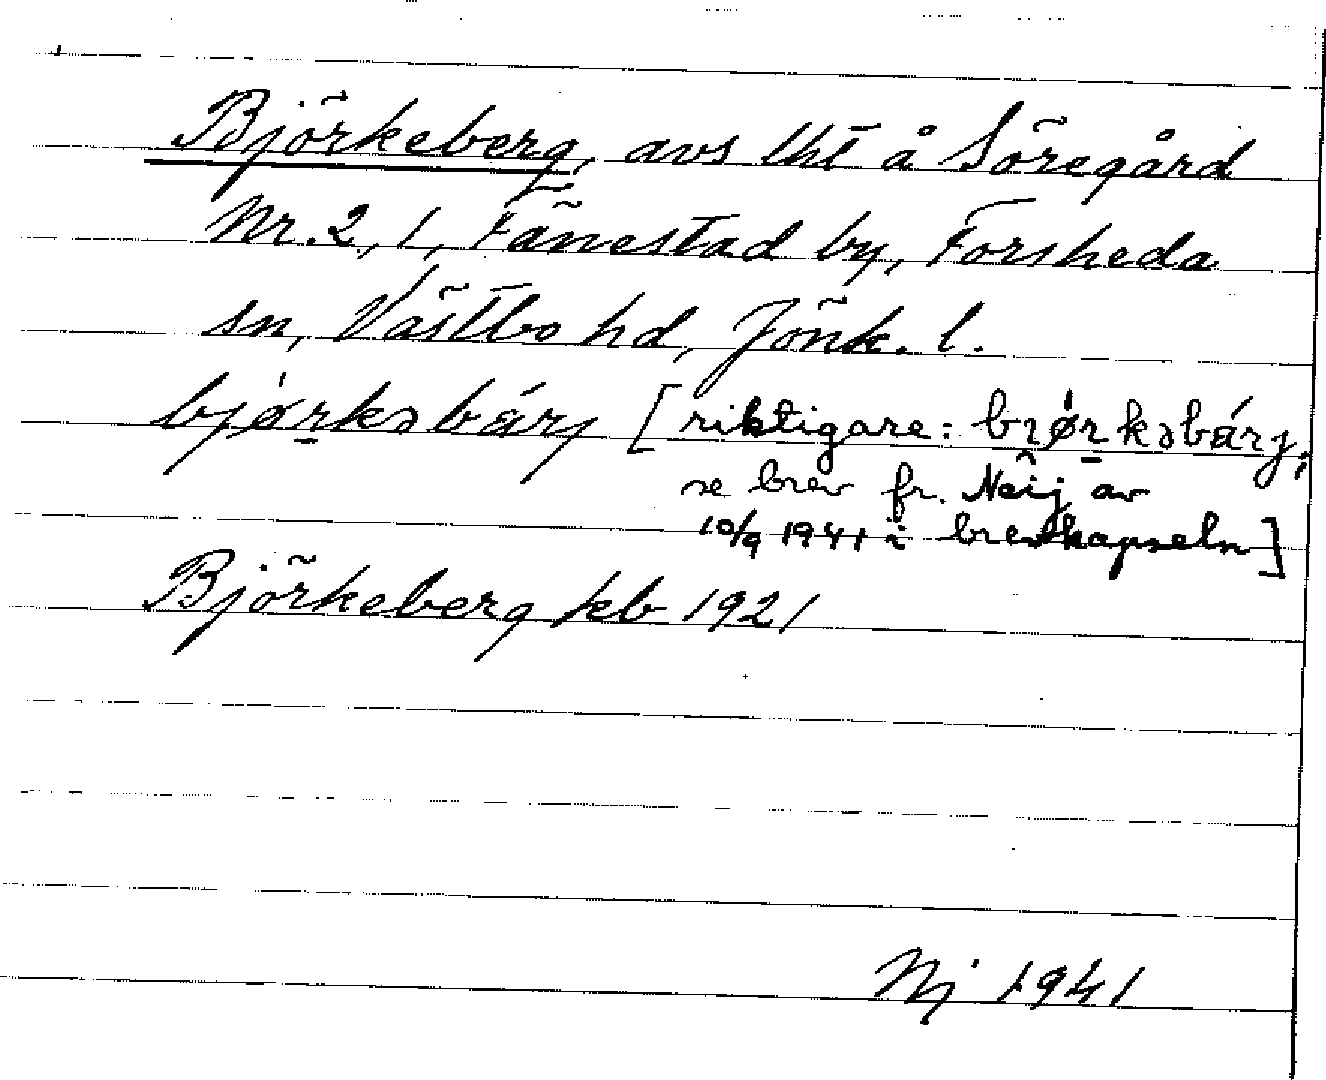 Björkeberg, avs lht å Söregård
Nr. 2, 1, Fänestad by, Forsheda
sn, Västbo hd, Jönk. l.
bjǿr̠kəbárj [riktigare: bɿǿr̠kəbárj;
se brev fr. Neij av
10/9 1941 i brevkapseln]
Björkeberg kb 1921
Nj 1941